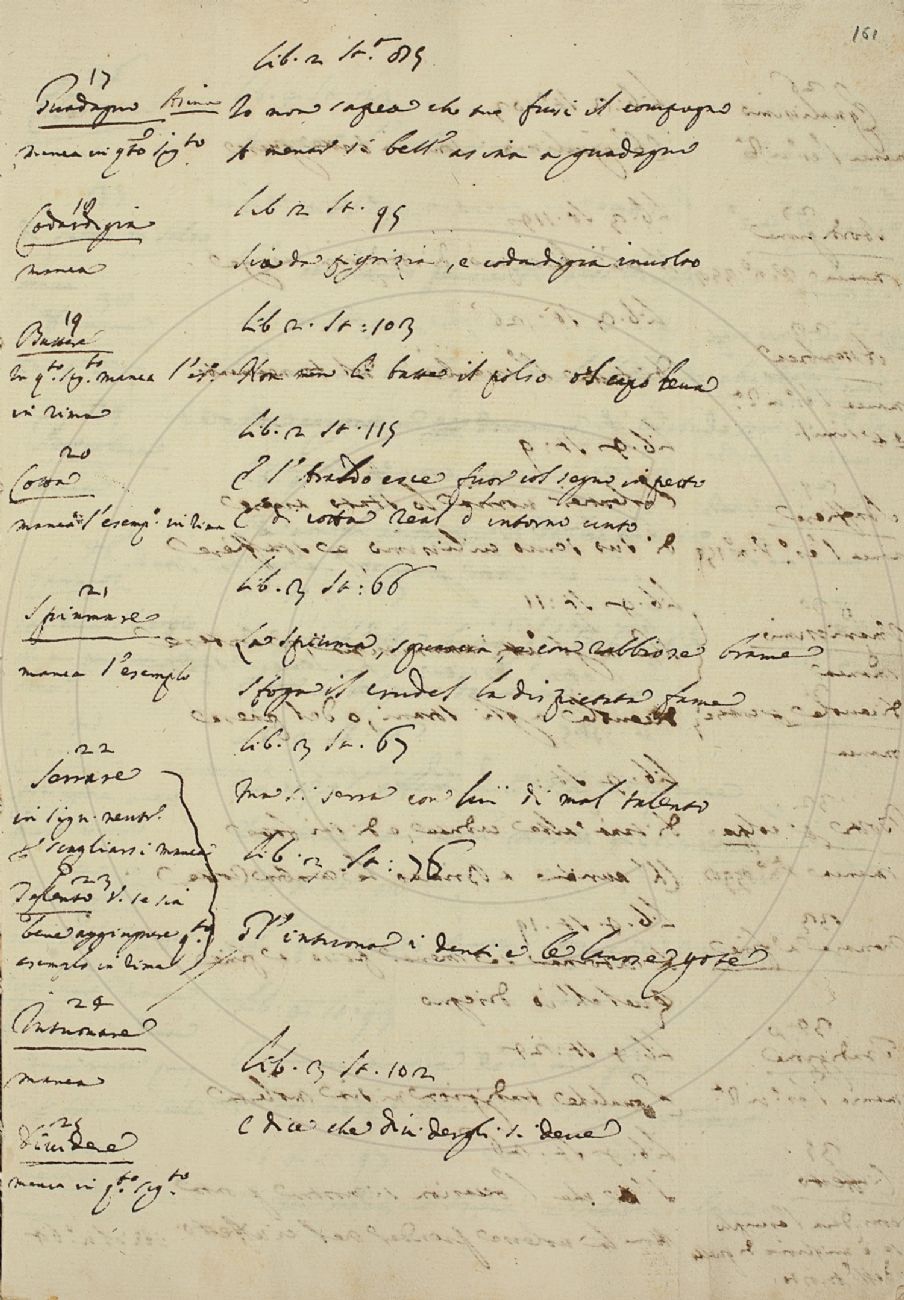 161
Lib. 2 St.ª 85
17
Guadagno Asina Io non sapea che me fussi il compagno
manca in q.to sig.to A menar sì bell'asina a guadagno
Lib 2 St. 95
18
Codardigia
manca Sia da pigrizia, e codardigia involto
Lib 2. St: 103
19
Battere
In q.to sig.to manca l'es.o Non li batte il polso o'l capo leva
in rima
Lib. 2 St. 115
20
Cotta E l'Araldo esce fuor col segno in petto
manca l'esemp.o in rima E di cotta real d'intorno cinto
Lib. 3 St: 66
21
Spiumare La spiuma, squarcia, e con rabbiose brame
manca l'esemplo sfoga il crudel la dispietata fame
Lib. 3 St. 67
22
Serrare Ma si serra con lui di mal talento
in sign. neutr.
di scagliarsi manca
Lib. 3 St: 76
23
Talento V. se sia
bene aggiungere q.to
esemplo in rima
Gl'introna i denti e le lanose gote
24
Intronare
manca
Lib. 3 St. 102
25
Dividere E dice che dividergli si deve
manca in q.to sig.to